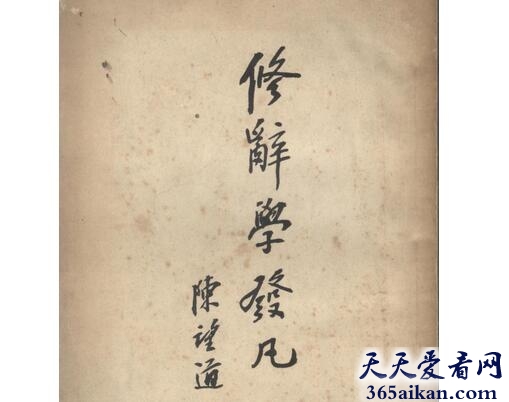 修辭學發凡
陳望道
天天爱看网
365aikan.com